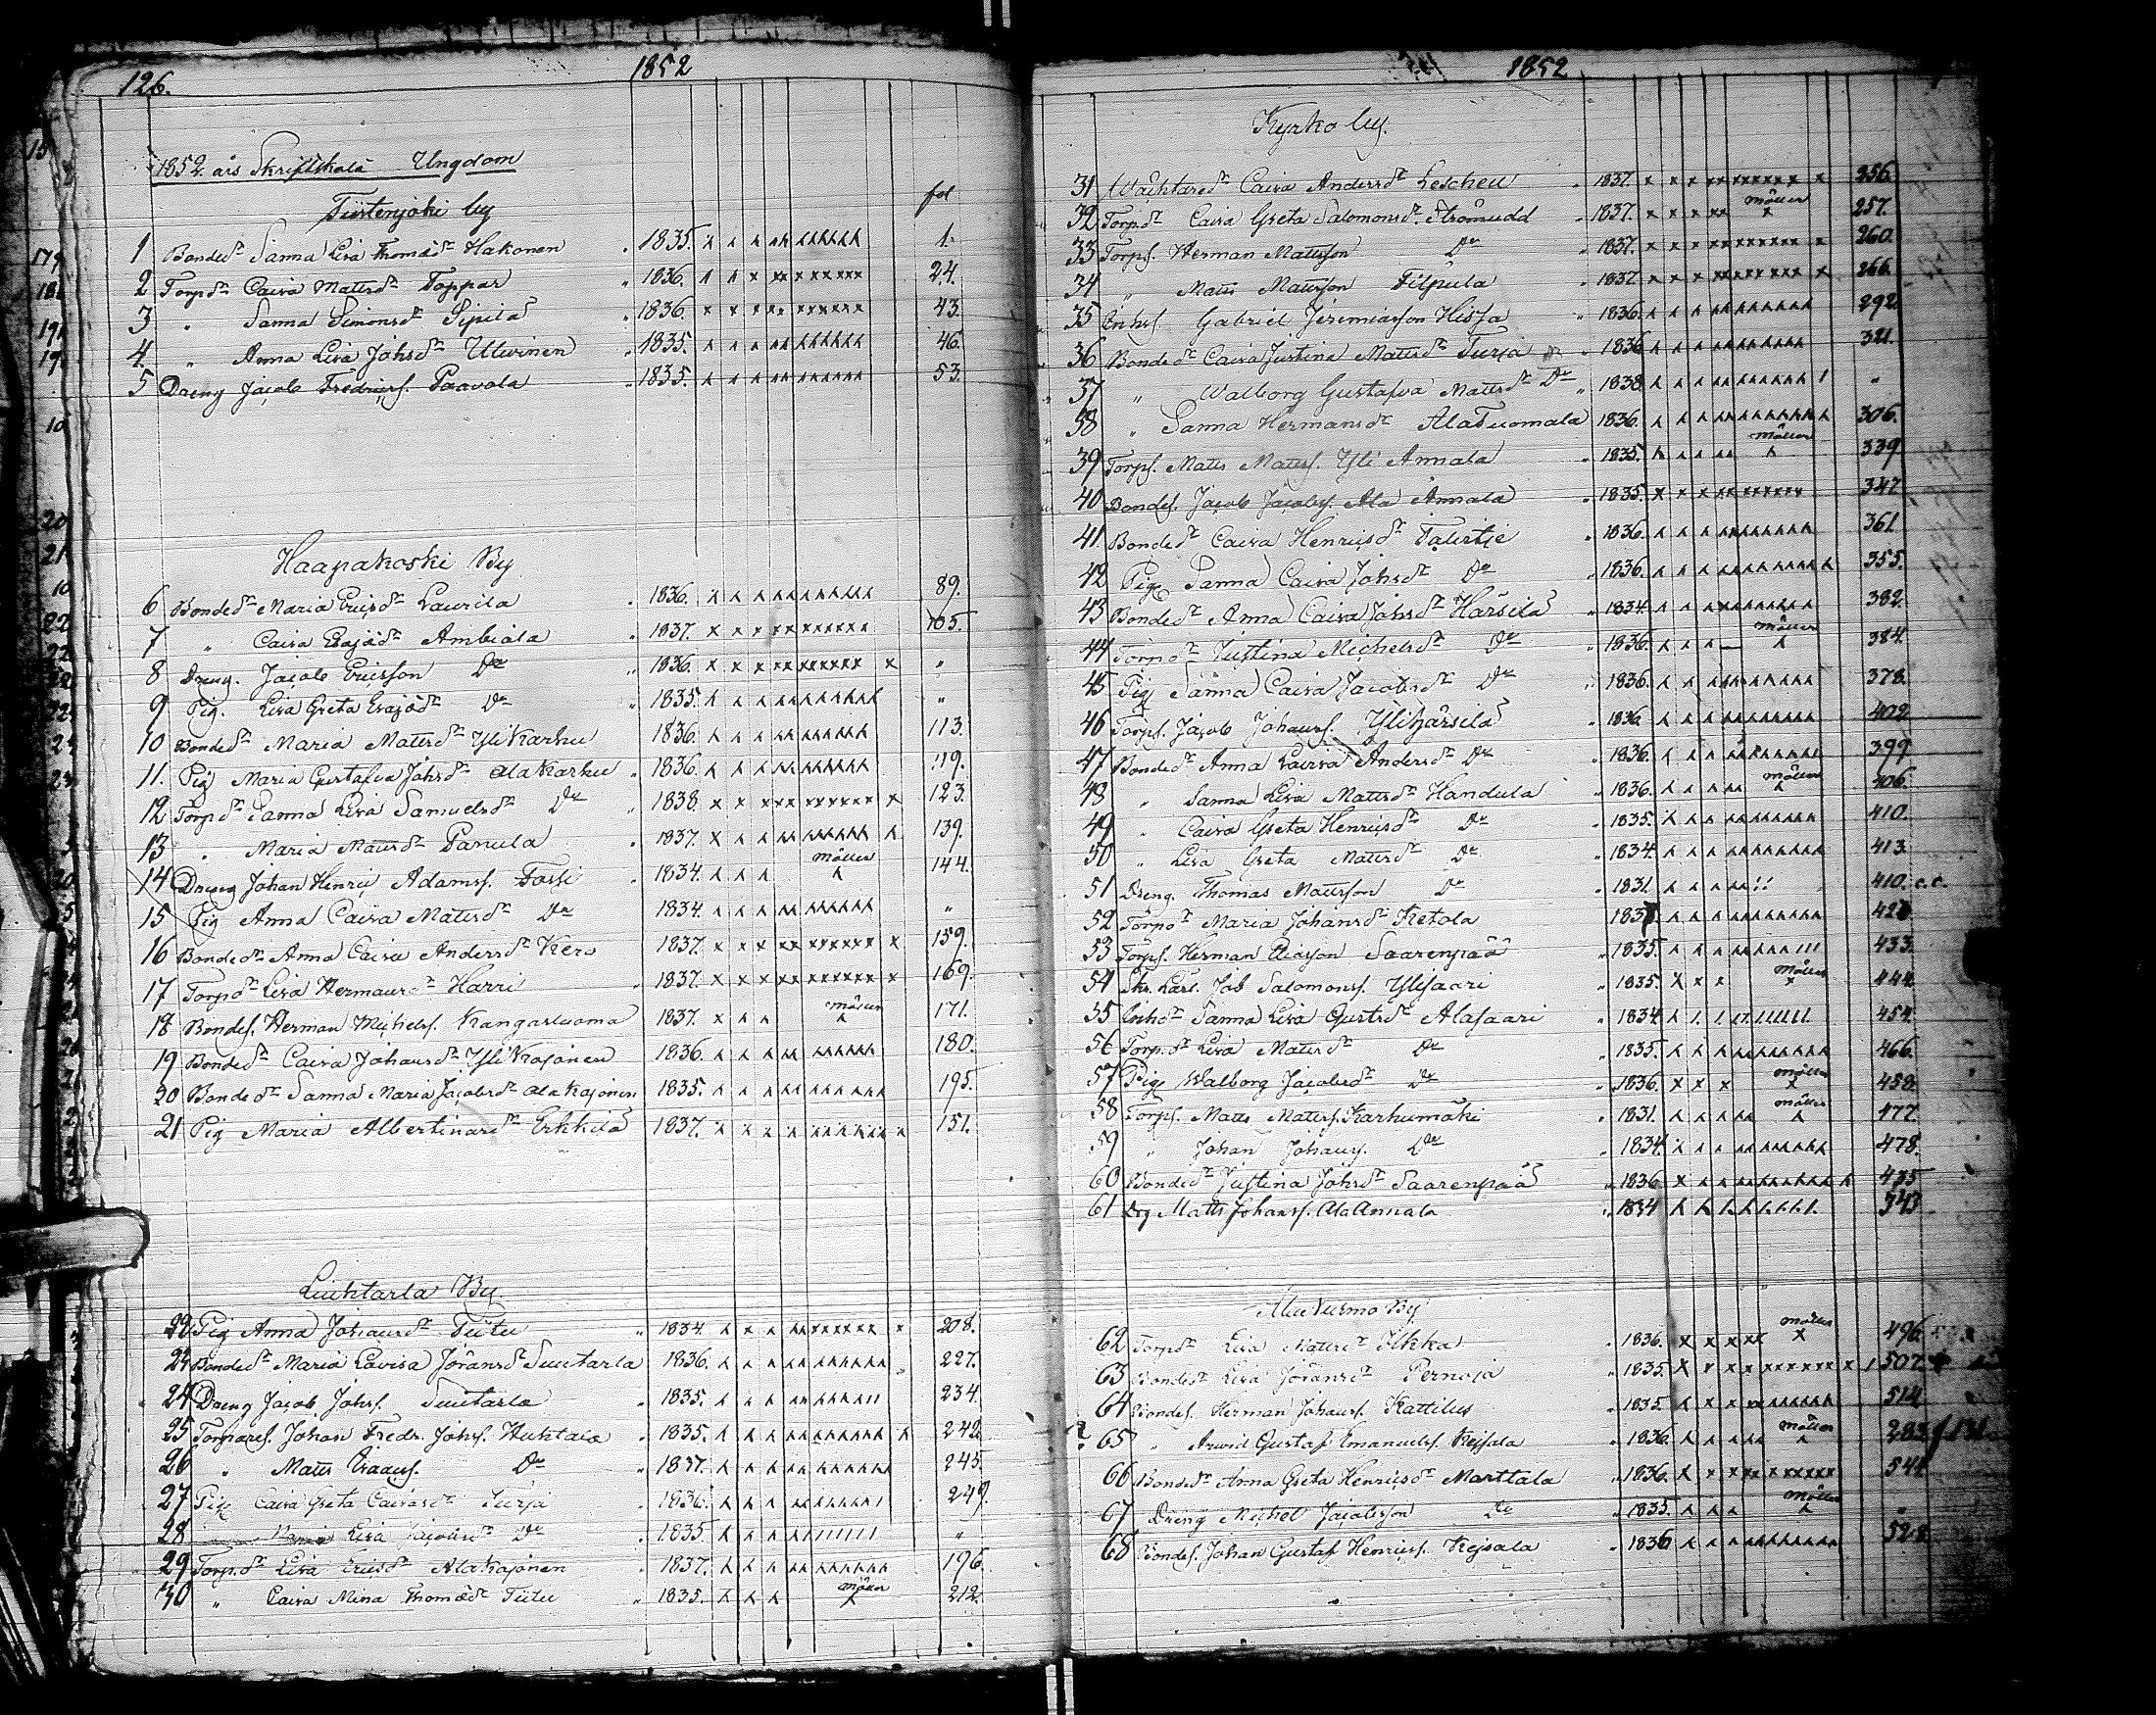 126.
1852
1852 års Skriftskola Ungdom
fol
Tiistenjoki by
1 Bonded:r Sanna Lisa Thomæd:r Hakonen " 1835. 1.
2 Torpd:r Caisa Mattsd:r Toppar " 1836. 24.
3 " Sanna Simonsd:r Sipilä " 1836. 43.
4 " Anna Lisa Johsd:r Ulvinen " 1835. 46.
5 Dreng Jacob Fredricss. Paavola " 1835. 53.
Haapakoski By
6 Bonded:r Maria Ericsd:r Laurila " 1836. 89.
7 " Caisa Esajæd:r Ambiala " 1837. 105.
8 Dreng. Jacob Ericsson D:o " 1836. "
9 Pig. Lisa Greta Esajæd:r D:o " 1835. "
10 Bonded:r Maria Mattsd:r Yli Karhu 1836. 113.
11. Pig Maria Gustafva Johsd:r Ala Karhu " 1836. 119.
12 Torpd:r Sanna Lisa Samuelsd:r D:o " 1838. 123.
13 " Maria Mattsd:r Panula " 1837. 139.
14 Dreng Johan Henric Adamss. Passi " 1834. mäller 144.
15 Pig Anna Caisa Mattsd:r D:o 1834. "
16 Bonded:r Anna Caisa Andersd:r Kero 1837. 159.
17 Torpd:r Lisa Hermansd:r Harri " 1837. 169.
18 Bondes. Herman Michelss. Kangasluoma 1837. mäller 171.
19 Bonded:r Caisa Johansd:r Yli Kajonen 1836. 180.
20 Bonded:r Sanna Maria Jacobsd:r Ala Kajonen 1835. 195.
21 Pig Maria Albertinasd:r Erkkilä 1837. 151.
Liuhtarla By
22 Pig Anna Johansd:r Tiitu " 1834. 208.
23 Bonded:r Maria Lovisa Jöransd:r Suutarla 1836. 227.
24 Dreng Jacob Johss. Suutarla " 1835. 234.
25 Torpares. Johan Fredr. Johss. Huhtala " 1835. 242.
26 " Matts Isaacss. D:o " 1837. 245.
27 Pig Caisa Greta Caisasd:r Turja " 1836. 249.
28 Lisa Jacobsd:r D:o " 1835. "
29 Torpd:r Lisa Ericsd:r Ala Kajonen " 1837. 196.
30 " Caisa Mina Thomæd:r Tiitu " 1835. mäller 212.
1852
Kyrko by.
31 Wäktared:r Caisa Andersd:r Leschen " 1837. 256.
32 Torpd:r Caisa Greta Salomonsd:r Strömudd " 1837. mäller 257.
33 Torps. Herman Mattsson D:o " 1837. 260.
34 " Matts Mattsson Filpula " 1837 266.
35 Inhs. Gabriel Jeremiasson Hissa " 1836. 292
36 Bonded:r Caisa Justina Mattsd:r Turja " 1836 321.
37 " Walborg Gustafva Mattsd:r D:o " 1838 "
38 " Sanna Hermansd:r AlaTuomala 1836. 306.
39 Torps. Matts Mattss. Yli Annala " 1835. mäller 339
40 Bondes. Jacob Jacobss. Ala Annala " 1835. 347
41 Bonded:r Caisa Henricsd:r " 1836. 361
42 Pig Sanna Caisa Johsd:r D:o " 1836. 355.
43 Bonded:r Anna Caisa Johsd:r Härsilä " 1834. 382.
44 Torpd:r Justina Michelsd:r D:o " 1836. mäller 384.
45 Pig Sanna Caisa Jacobsd:r D:o " 1836. 378.
46 Torps. Jacob Johanss. Ylihärsilä " 1836 402
47 Bonded:r Anna Andersd:r D:o " 1836. 399
48 " Sanna Lisa Mattsd:r Handula " 1836. mäller 406.
49 " Caisa Greta Henricsd:r D:o " 1835. 410.
50 " Lisa Greta Mattsd:r D:o " 1834. 413.
51 Dreng. Thomas Mattsson D:o " 1831 410. c.c.
52 Torpd:r Maria Johansd:r Ketola 1837. 423.
53 Torps. Herman Eliasson Saarenpää " 1835. 433.
54 Sk. Lärl. Job Salomonss. Ylisaari " 1835. mäller 444.
55 Inhsd:r Sanna Lisa Gustsd:r Alasaari " 1834 454.
56 Torpd:r Lisa Mattsd:r D:o " 1835. 466.
57 Pig Walborg Jacobsd:r D:o " 1836. mäller 458.
58 Torps. Matts Mattss. Karhumäki " 1831. mäller 477.
59 " Johan Johanss. D:o " 1834. 478.
60 Bonded:r Justina Johsd:r Saarenpää " 1836 435
61 Drg Matts Johanss. Ala Annala " 1834 343
Alu Nurmo By
62 Torpd:r Lisa Mattsd:r Ilkka " 1836. mäller 496.
63 Bonded:r Lisa Jöransd:r Pernaja " 1835. 507.
64 Bondes. Herman Johanss. Kattilus " 1835. 514.
65 " Arvid Gustaf Emanuelss. Keisala " 1836. mäller 283 f 131
66 Bonded:r Anna Greta Henricsd:r Marttala " 1836. 544
67 Dreng Michel Jacobsson D:o " 1835. mäller "
68 Bondes. Johan Gustaf Henricss. Keisala " 1836 528